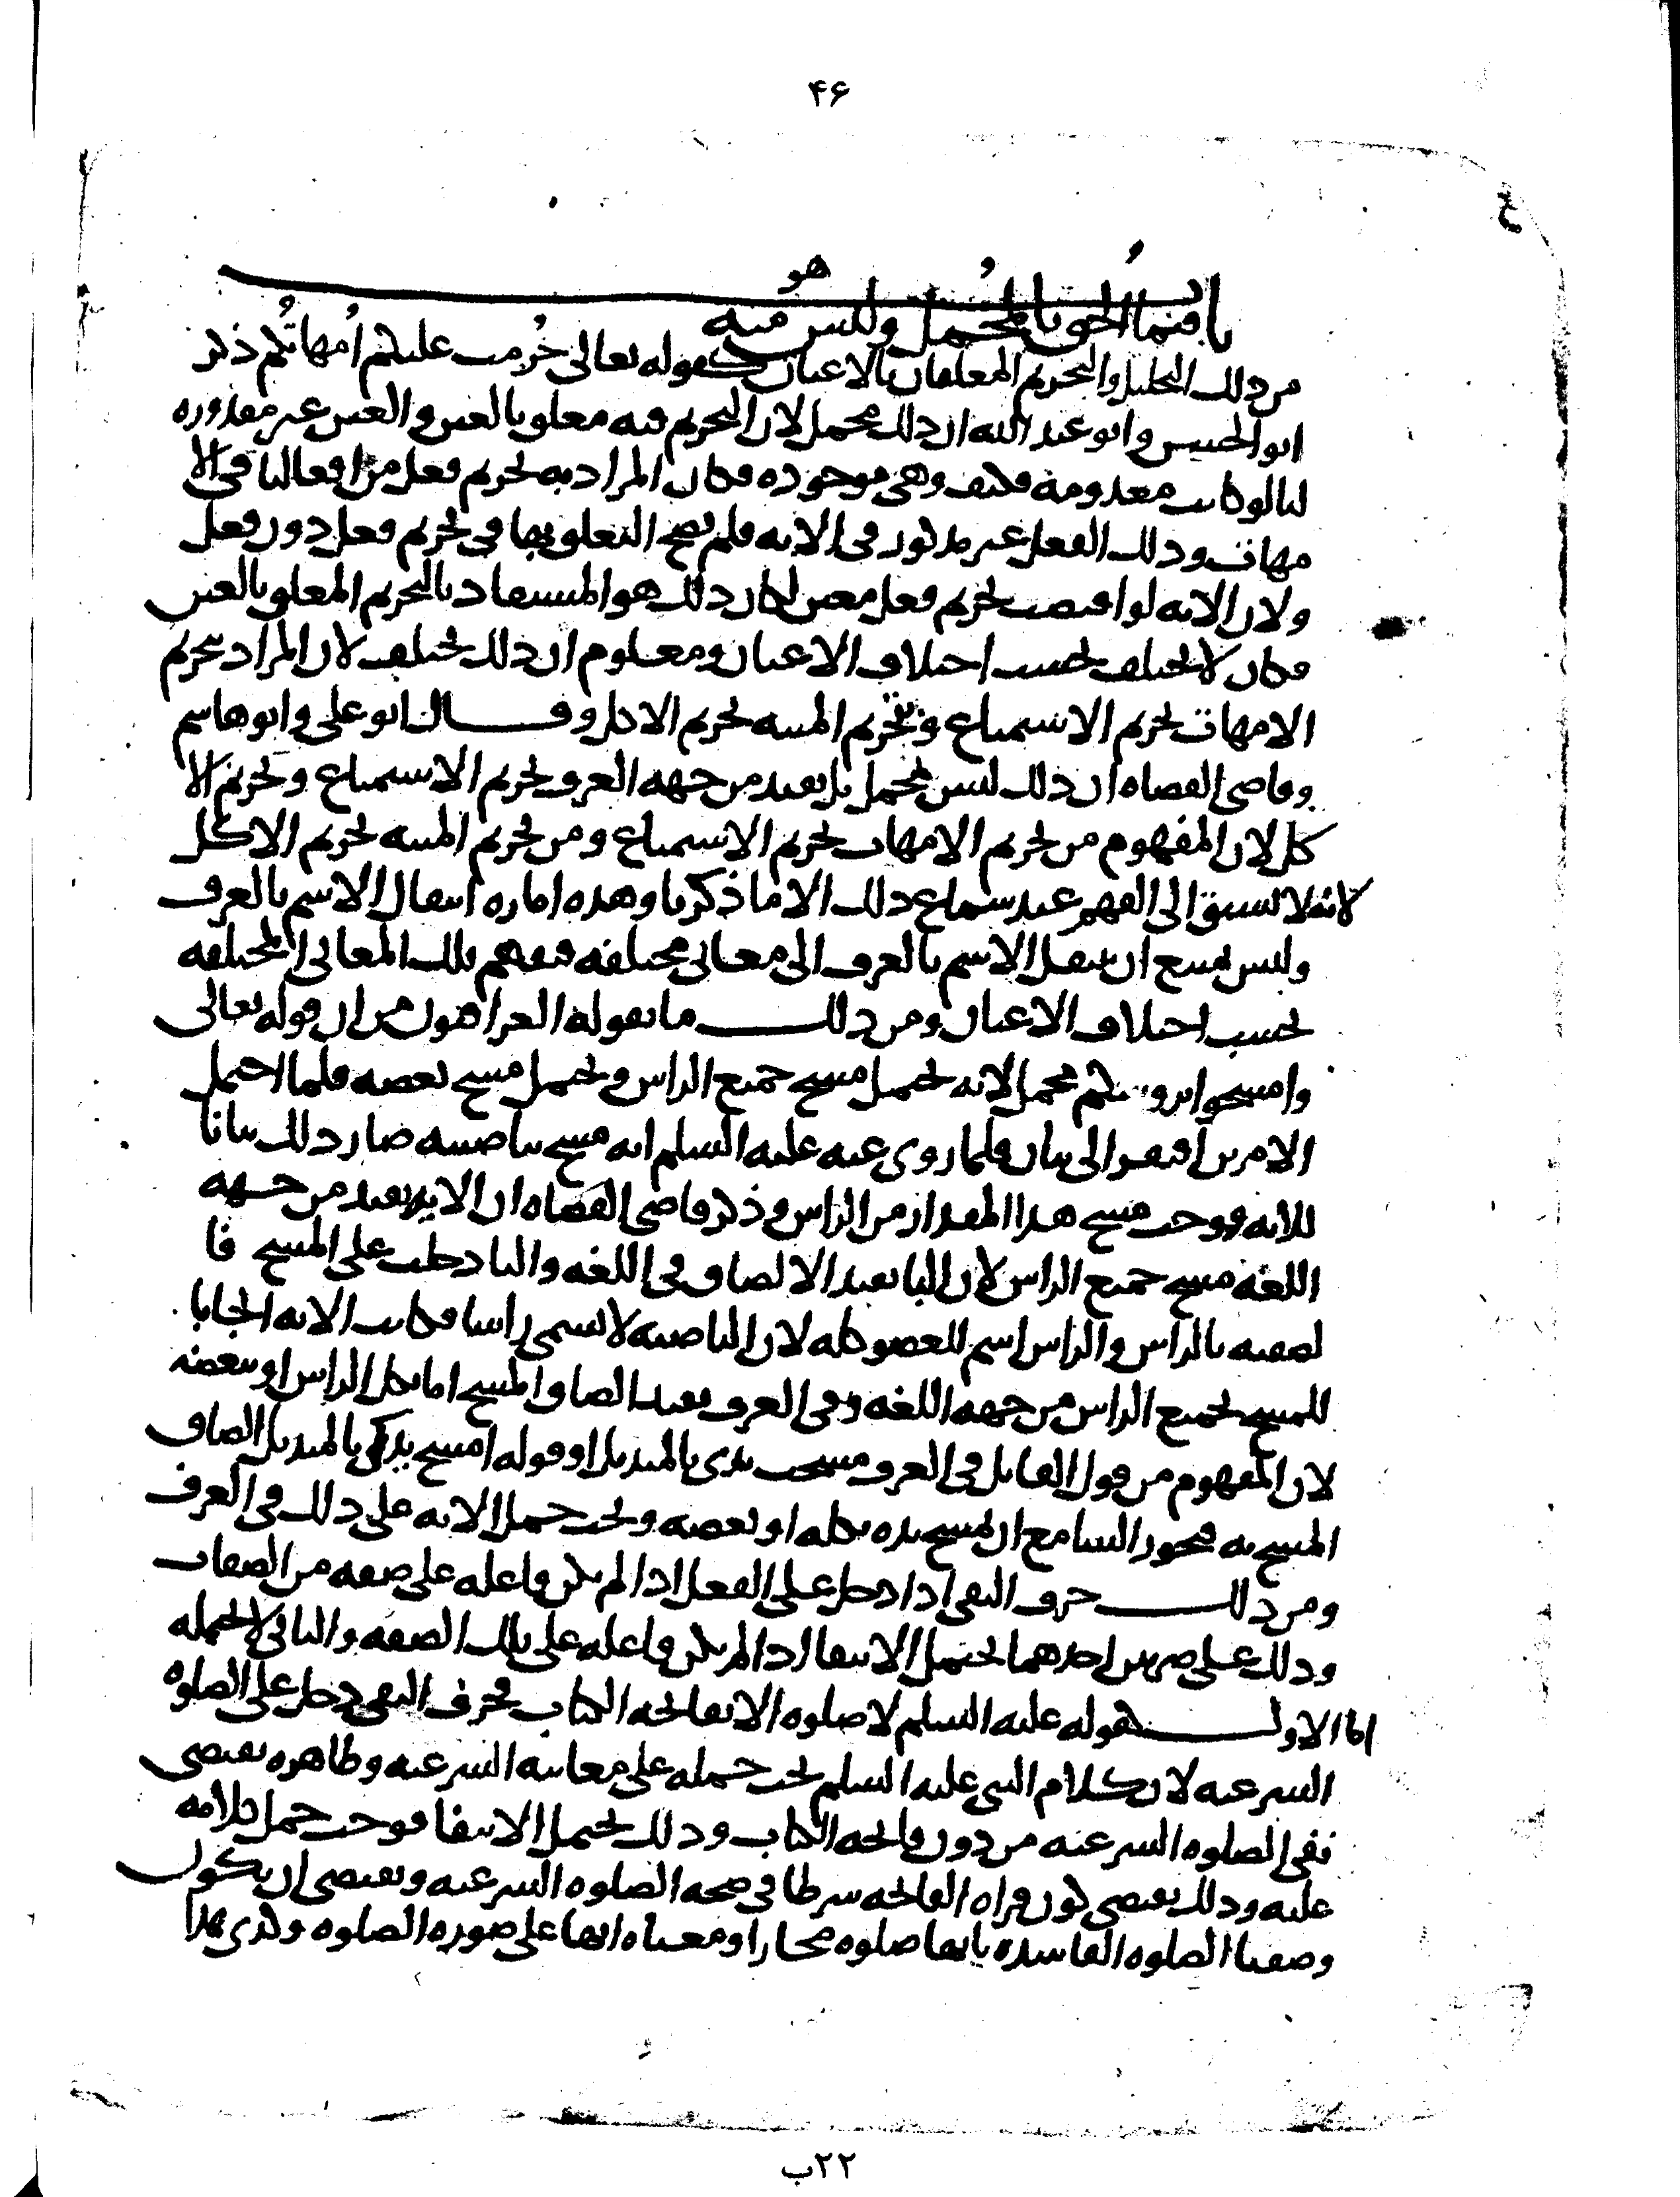 ۴۶
باب فيما الحق بالمجمل وليس هو منه
من ذلك التحليل والتحريم المعلقان بالاعيان كقوله تعالى حُرمت عليكم اُمهاتُكم ذكر
ابو الحسين وابو عبد الله ان ذلك مجمل لان التحريم فيه معلق بالعين والعين غير مقدوره
لنا لو كانت معدومة فكيف وهى موجوده فكان المراد به تحريم فعل من افعالنا فى الا
مهات وذلك الفعل غير مذكور فى الايه فلم يصح التعلق بها فى تحريم فعل دون فعل
ولان الايه لو اقتضت تحريم فعل معين لكان ذلك هو المستفاد بالتحريم المعلق بالعين
فكان لا يختلف بحسب اختلاف الاعيان ومعلوم ان ذلك يختلف لان المراد بتحريم
الامهات تحريم الاستمتاع وبتحريم الميته تحريم الاكل وقال ابو على وابو هاشم
وقاضى القضاه ان ذلك ليس بمجمل بل يفيد من جهه العرف تحريم الاستمتاع وتحريم الا
كل لان المفهوم من تحريم الامهات تحريم الاستمتاع ومن تحريم الميته تحريم الاكل
لانه لا يسبق الى الفهم عند سماع ذلك الا ما ذكرنا وهذه اماره انتقال الاسم بالعرف
وليس يمتنع ان ينتقل الاسم بالعرف الى معانى مختلفه فيفهم تلك المعانى المختلفه
بحسب اختلاف الاعيان ومن ذلك ما يقوله العراقيون من ان قوله تعالى
وامسحوا برووسكم مجمل لانه يحتمل مسح جميع الراس ويحتمل مسح بعضه فلما احتمل
الامرين افتقر الى بيان فلما روى عنه عليه السلم انه مسح بناصيته صار ذلك بيانا
للايه ووجب مسح هذا المقدار من الراس وذكر قاضى القضاه ان الايه تفيد من جهه
اللغه مسح جميع الراس لان البا تفيد الالصاق فى اللغه والبا دخلت على المسح فا
لصقته بالراس والراس اسم للعضو كله لان الناصيه لا تسمى راسا فكانت الايه ايجابا
للمسح بجميع الراس من جهه اللغه وفى العرف يفيد الصاق المسح اما بكل الراس او ببعضه
لان المفهوم من قول القايل فى العرف مسحت يدى بالمنديل او قوله امسح يدك بالمنديل الصاق
المسح به فيجوز السامع ان يمسح يده بكله او بعضه ويجب حمل الايه على ذلك فى العرف
ومن ذلك حرف النفى اذا دخل على الفعل اذا لم يكن فاعله على صفه من الصفات
وذلك على ضربين احدهما يحتمل الانتفا اذا لم يكن فاعله على تلك الصفه والثانى لا يحتمله
اما الاول فقوله عليه السلم لا صلوه الا بفاتحه الكتاب فحرف النفى دخل على الصلوه
الشرعيه لان كلام النبى عليه السلم يجب حمله على معانيه الشرعيه وظاهره يقتضى
نفى الصلوه الشرعيه من دون فاتحه الكتاب وذلك يحتمل الانتفا فوجب حمل كلامه
عليه وذلك يقتضى كون قراه الفاتحه شرطا فى صحه الصلوه الشرعيه ويقتضى ان يكون
وصفنا الصلوه الفاسده بانها صلوه مجازا ومعناه انها على صوره الصلوه ولذى هذا
۲۲ب